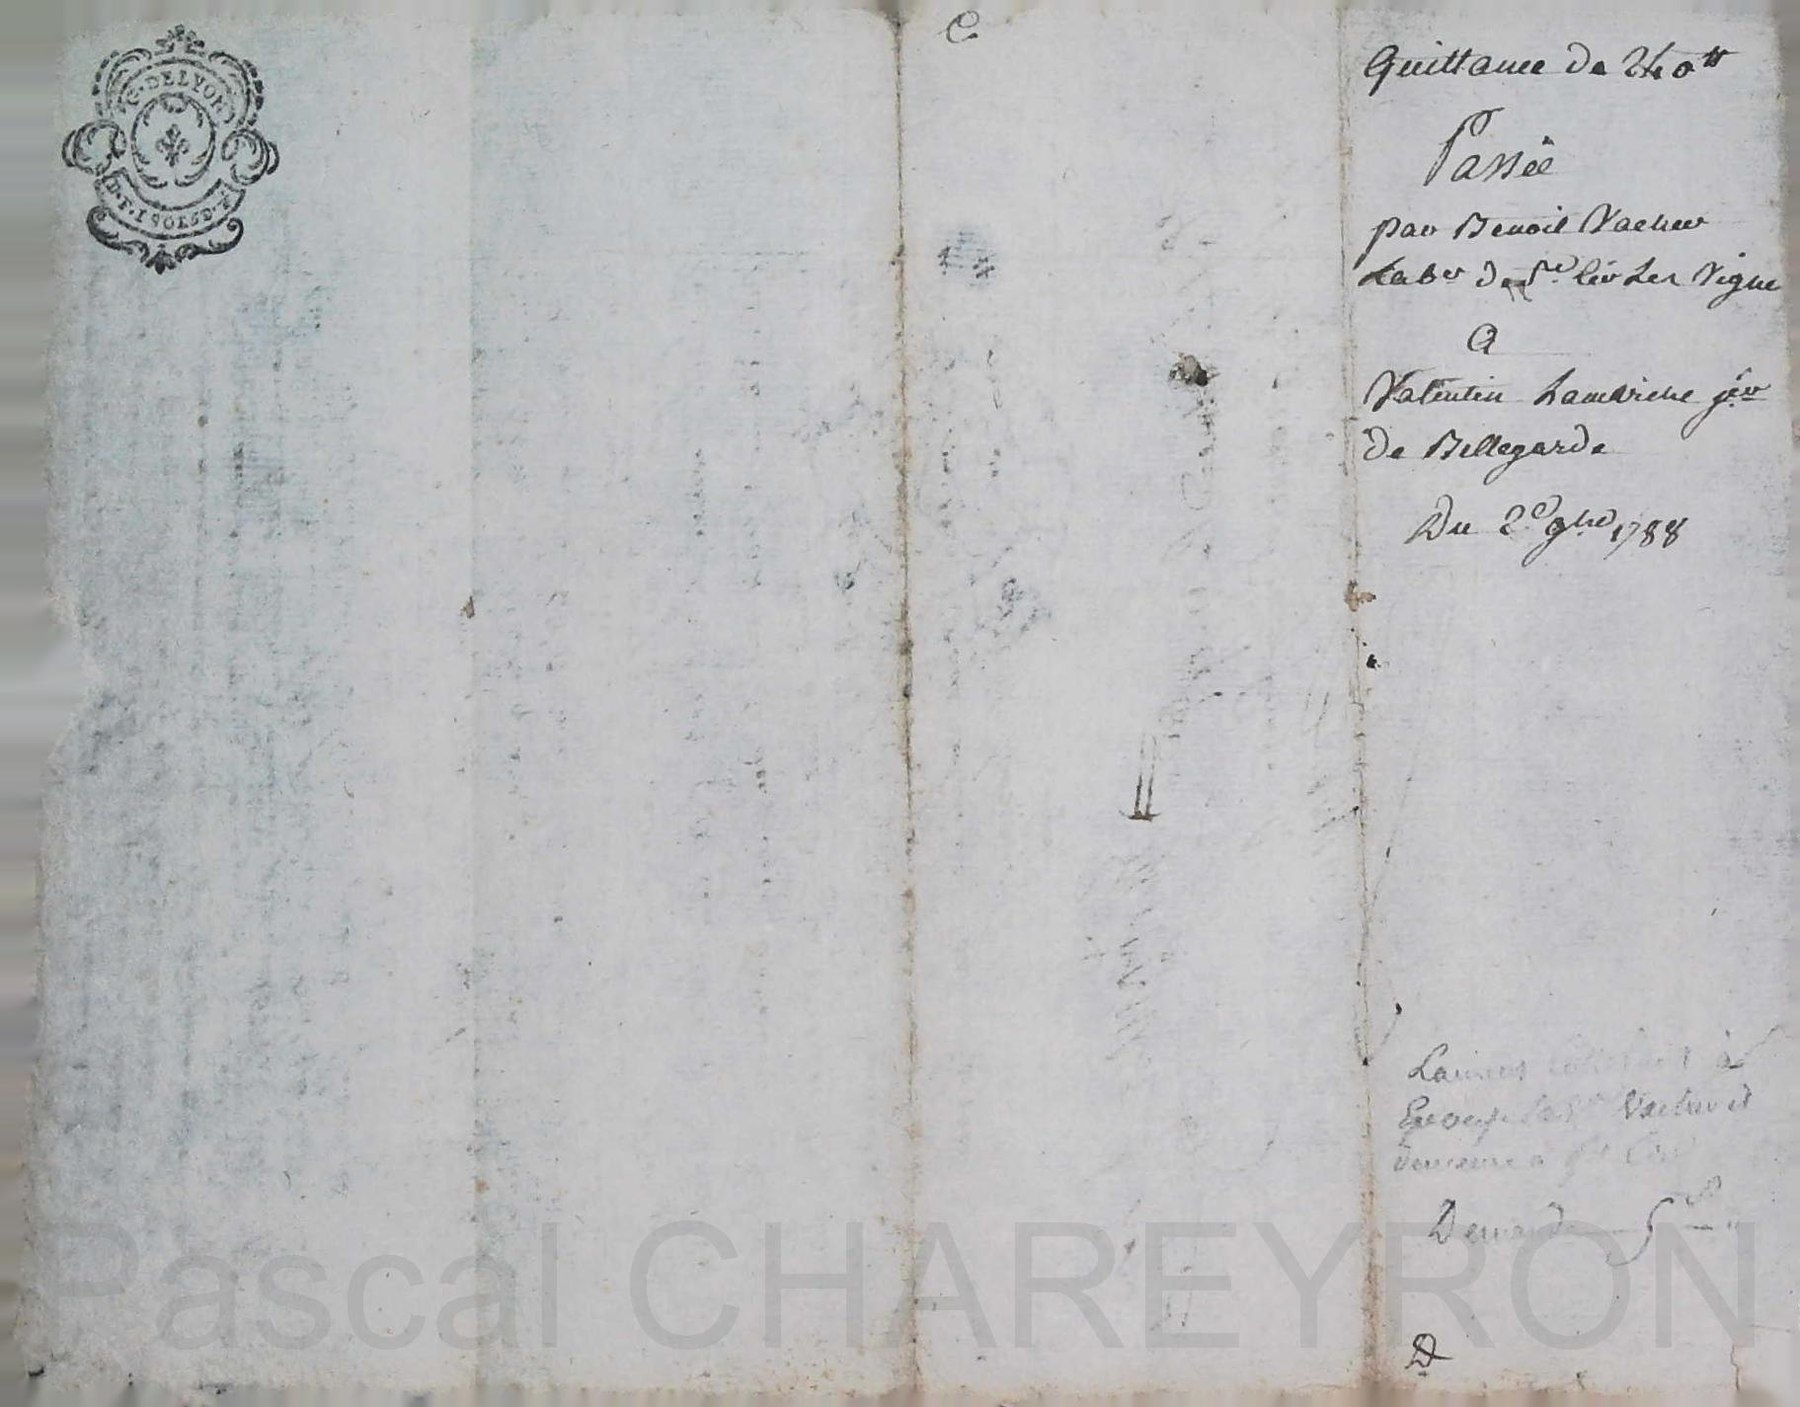 G. DE LYON
D.P. 1 SOL 6 D.R.
C
Quittance de 240 tt
Passée
par Benoit Vacher
Lab.r de St. Cir Les Vigne
A
Valentin Lambriche j.er
de Bellegarde
Du 2e 9bre 1788
a
Vacher et
demeure a St Cir
Demande
Pascal CHAREYRON